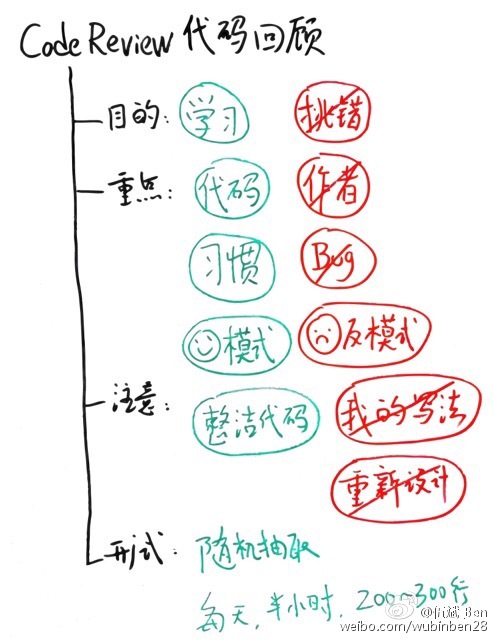 Code Review 代码回顾
目的: 学习 挑错
重点: 代码 作者
习惯 Bug
模式 反模式
注意: 整洁代码 我的写法
重新设计
形式: 随机抽取
每天, 半小时, 200~300行
@伍斌_Ben
weibo.com/wubinben28